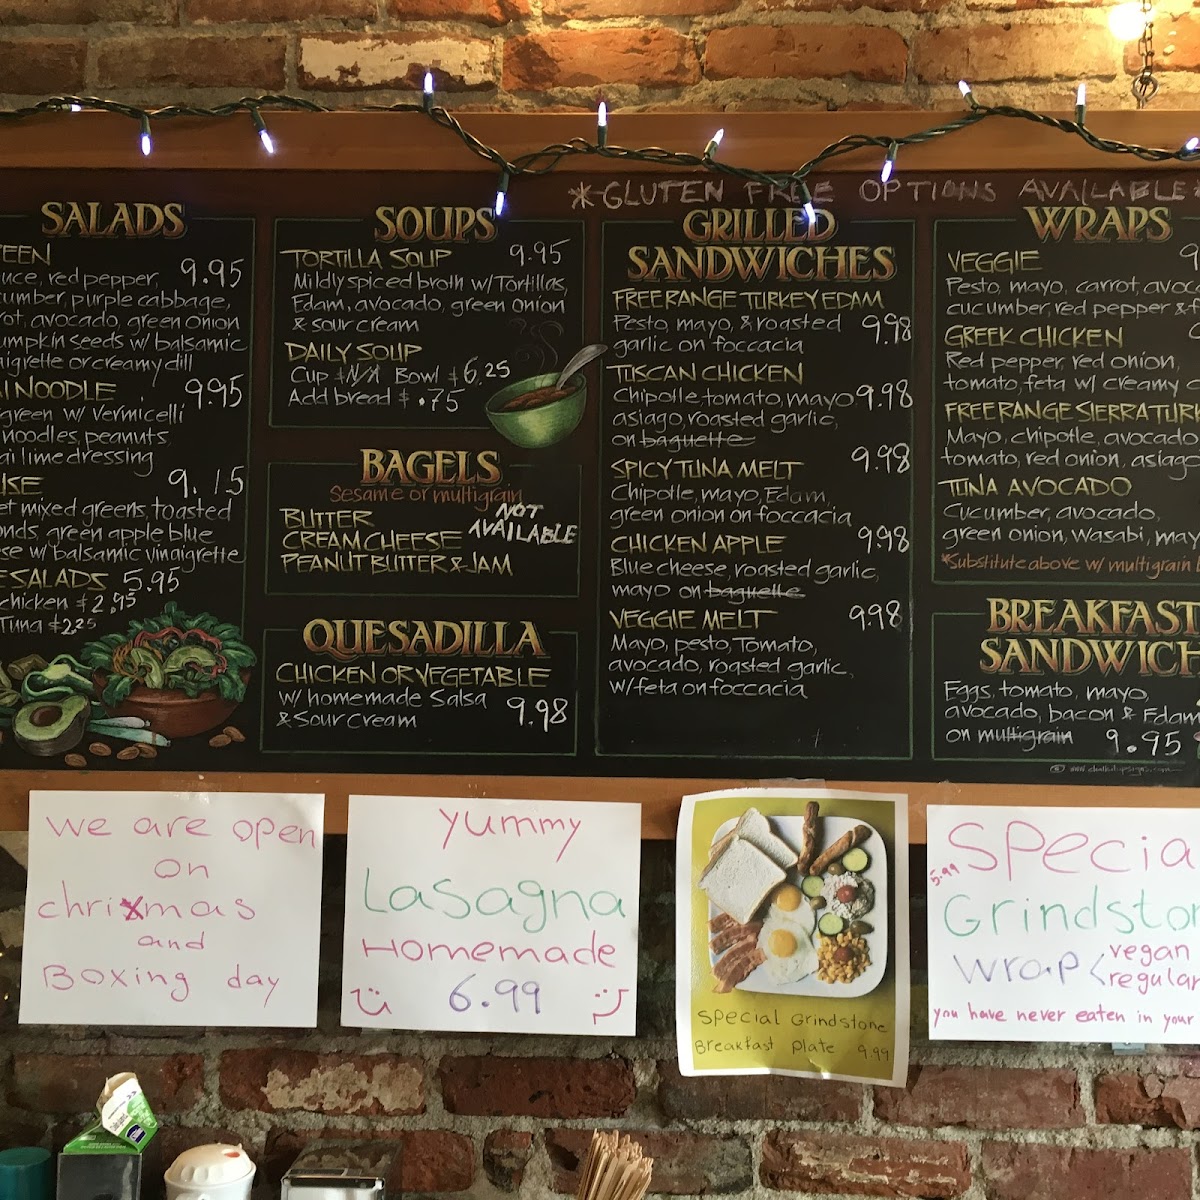 *GLUTEN FREE OPTIONS AVAILABLE
SALADS
9.95
red pepper,
purple cabbage,
avocado, green onion
seeds w/ balsamic
or creamy dill
NOODLE 9.95
green w/ vermicelli
noodles, peanuts,
lime dressing
9.15
mixed greens, toasted
green apple blue
w/ balsamic vinaigrette
SALADS 5.95
chicken $2.95
Tuna $2.25
SOUPS
TORTILLA SOUP 9.95
Mildly spiced broth w/ Tortillas,
Edam, avocado, green onion
& sour cream
DAILY SOUP
Cup $N/A Bowl $6.25
Add bread $.75
BAGELS
Sesame or multigrain
BUTTER
CREAM CHEESE
PEANUT BUTTER & JAM
NOT
AVAILABLE
QUESADILLA
CHICKEN OR VEGETABLE
w/ homemade Salsa
& Sour Cream 9.98
GRILLED
SANDWICHES
FREE RANGE TURKEY EDAM
Pesto, mayo, & roasted 9.98
garlic on foccacia
TUSCAN CHICKEN
Chipotle, tomato, mayo 9.98
asiago, roasted garlic,
on baguette
SPICY TUNA MELT 9.98
Chipotle, mayo, Edam,
green onion on foccacia
CHICKEN APPLE 9.98
Blue cheese, roasted garlic,
mayo on baguette
VEGGIE MELT 9.98
Mayo, pesto, Tomato,
avocado, roasted garlic,
w/ feta on foccacia
WRAPS
VEGGIE
Pesto, mayo, carrot,
cucumber, red pepper &
GREEK CHICKEN
Red pepper, red onion,
tomato, feta w/ creamy
FREE RANGE SIERRA
Mayo, chipotle, avocado
tomato, red onion, asiago
TUNA AVOCADO
Cucumber, avocado,
green onion, Wasabi, mayo
*Substitute above w/ multigrain
BREAKFAST
SANDWICH
Eggs, tomato, mayo,
avocado, bacon & Edam
on multigrain 9.95
we are open
on
chrixmas
and
Boxing day
yummy
Lasagna
Homemade
6.99
special Grindstone
Breakfast plate 9.99
special
5.99
Grindstone
wrap < vegan
regular
you have never eaten in your